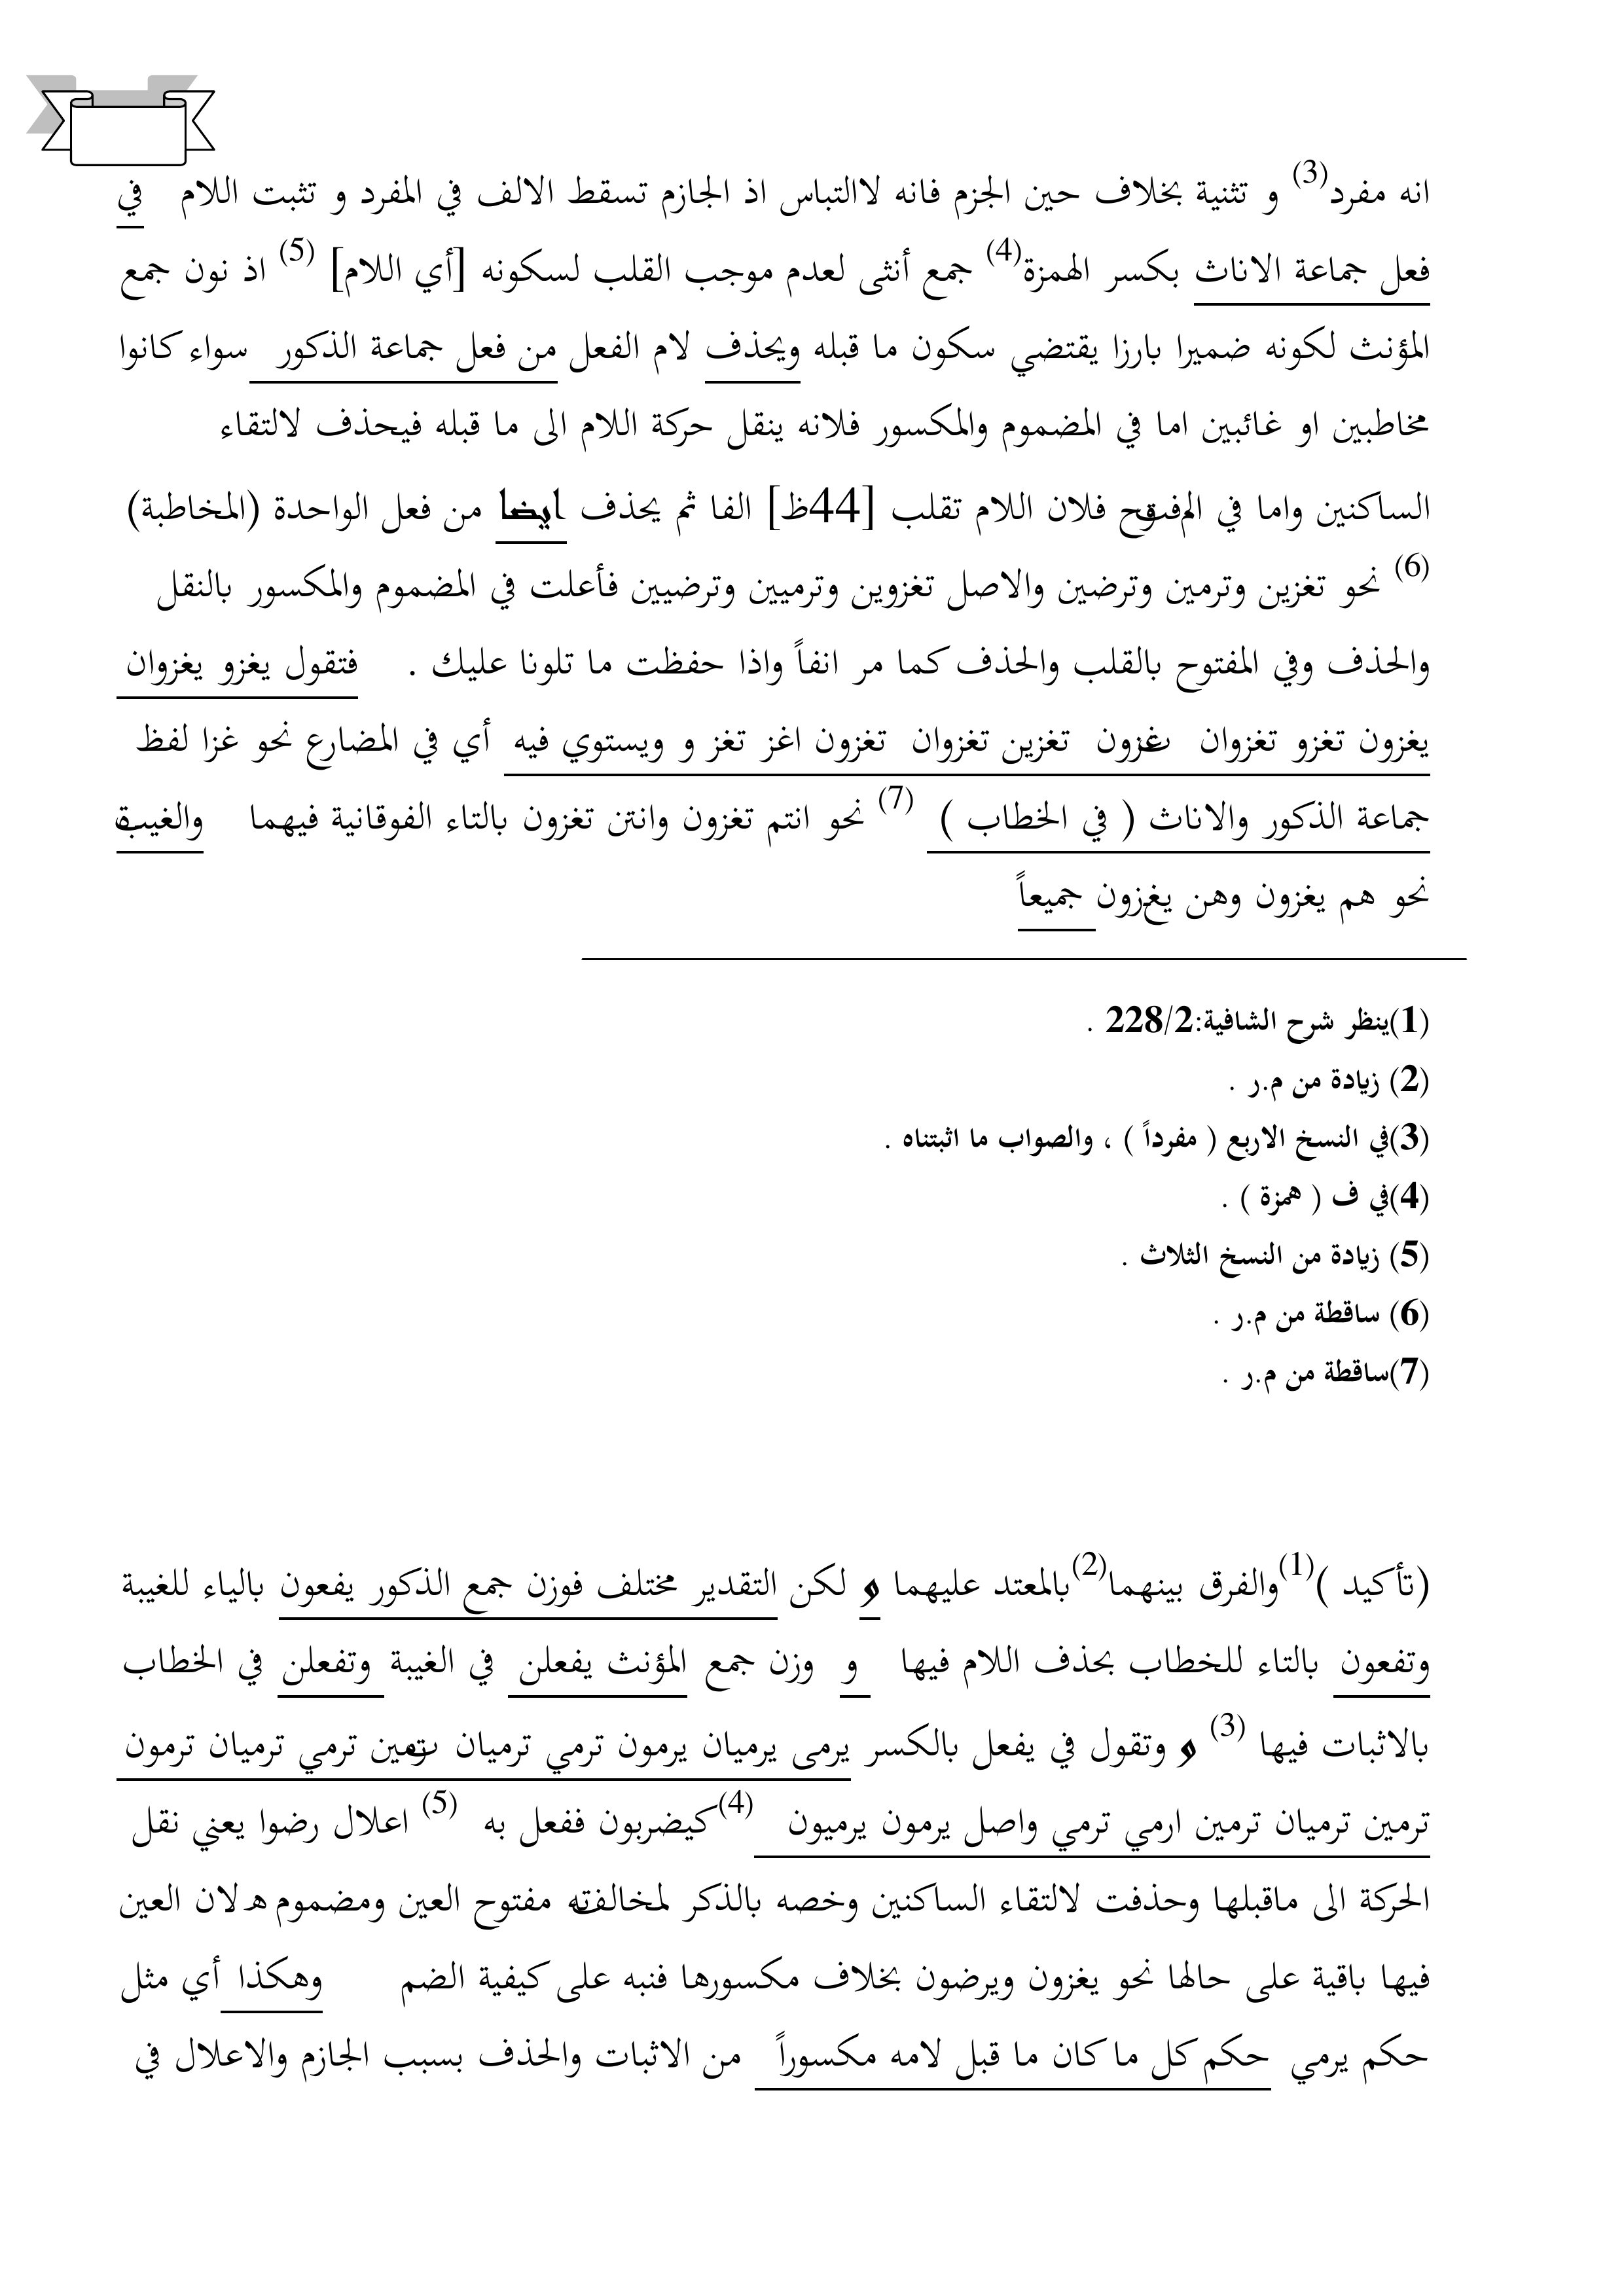 انه مفرد(3) و تثنية بخلاف حين الجزم فانه لاالتباس اذ الجازم تسقط الالف في المفرد و تثبت اللام في
فعل جماعة الاناث بكسر الهمزة(4) جمع أنثى لعدم موجب القلب لسكونه [أي اللام] (5) اذ نون جمع
المؤنث لكونه ضميرا بارزا يقتضي سكون ما قبله ويحذف لام الفعل من فعل جماعة الذكور سواء كانوا
مخاطبين او غائبين اما في المضموم والمكسور فلانه ينقل حركة اللام الى ما قبله فيحذف لالتقاء
الساكنين واما في المفتوح فلان اللام تقلب [44ظ] الفا ثم يحذف ايضا من فعل الواحدة (المخاطبة)
(6) نحو تغزين وترمين وترضين والاصل تغزوين وترميين وترضيين فأعلت في المضموم والمكسور بالنقل
والحذف وفي المفتوح بالقلب والحذف كما مر انفاً واذا حفظت ما تلونا عليك . فتقول يغزو يغزوان
يغزون تغزو تغزوان تغزون تغزين تغزوان تغزون اغز تغز و ويستوي فيه أي في المضارع نحو غزا لفظ
جماعة الذكور والاناث ( في الخطاب ) (7) نحو انتم تغزون وانتن تغزون بالتاء الفوقانية فيهما والغيبة
نحو هم يغزون وهن يغزون جميعاً
(1)ينظر شرح الشافية:228/2 .
(2) زيادة من م.ر .
(3)في النسخ الاربع ( مفرداً ) ، والصواب ما اثبتناه .
(4)في ف ( همزة ) .
(5) زيادة من النسخ الثلاث .
(6) ساقطة من م.ر .
(7)ساقطة من م.ر .
(تأكيد )(1)والفرق بينهما(2)بالمعتد عليهما و لكن التقدير مختلف فوزن جمع الذكور يفعون بالياء للغيبة
وتفعون بالتاء للخطاب بحذف اللام فيها و وزن جمع المؤنث يفعلن في الغيبة وتفعلن في الخطاب
بالاثبات فيها (3) و وتقول في يفعل بالكسر يرمى يرميان يرمون ترمي ترميان ترمين ترمي ترميان ترمون
ترمين ترميان ترمين ارمي ترمي واصل يرمون يرميون (4)كيضربون ففعل به (5) اعلال رضوا يعني نقل
الحركة الى ماقبلها وحذفت لالتقاء الساكنين وخصه بالذكر لمخالفته مفتوح العين ومضموم ه لان العين
فيها باقية على حالها نحو يغزون ويرضون بخلاف مكسورها فنبه على كيفية الضم وهكذا أي مثل
حكم يرمي حكم كل ما كان ما قبل لامه مكسوراً من الاثبات والحذف بسبب الجازم والاعلال في